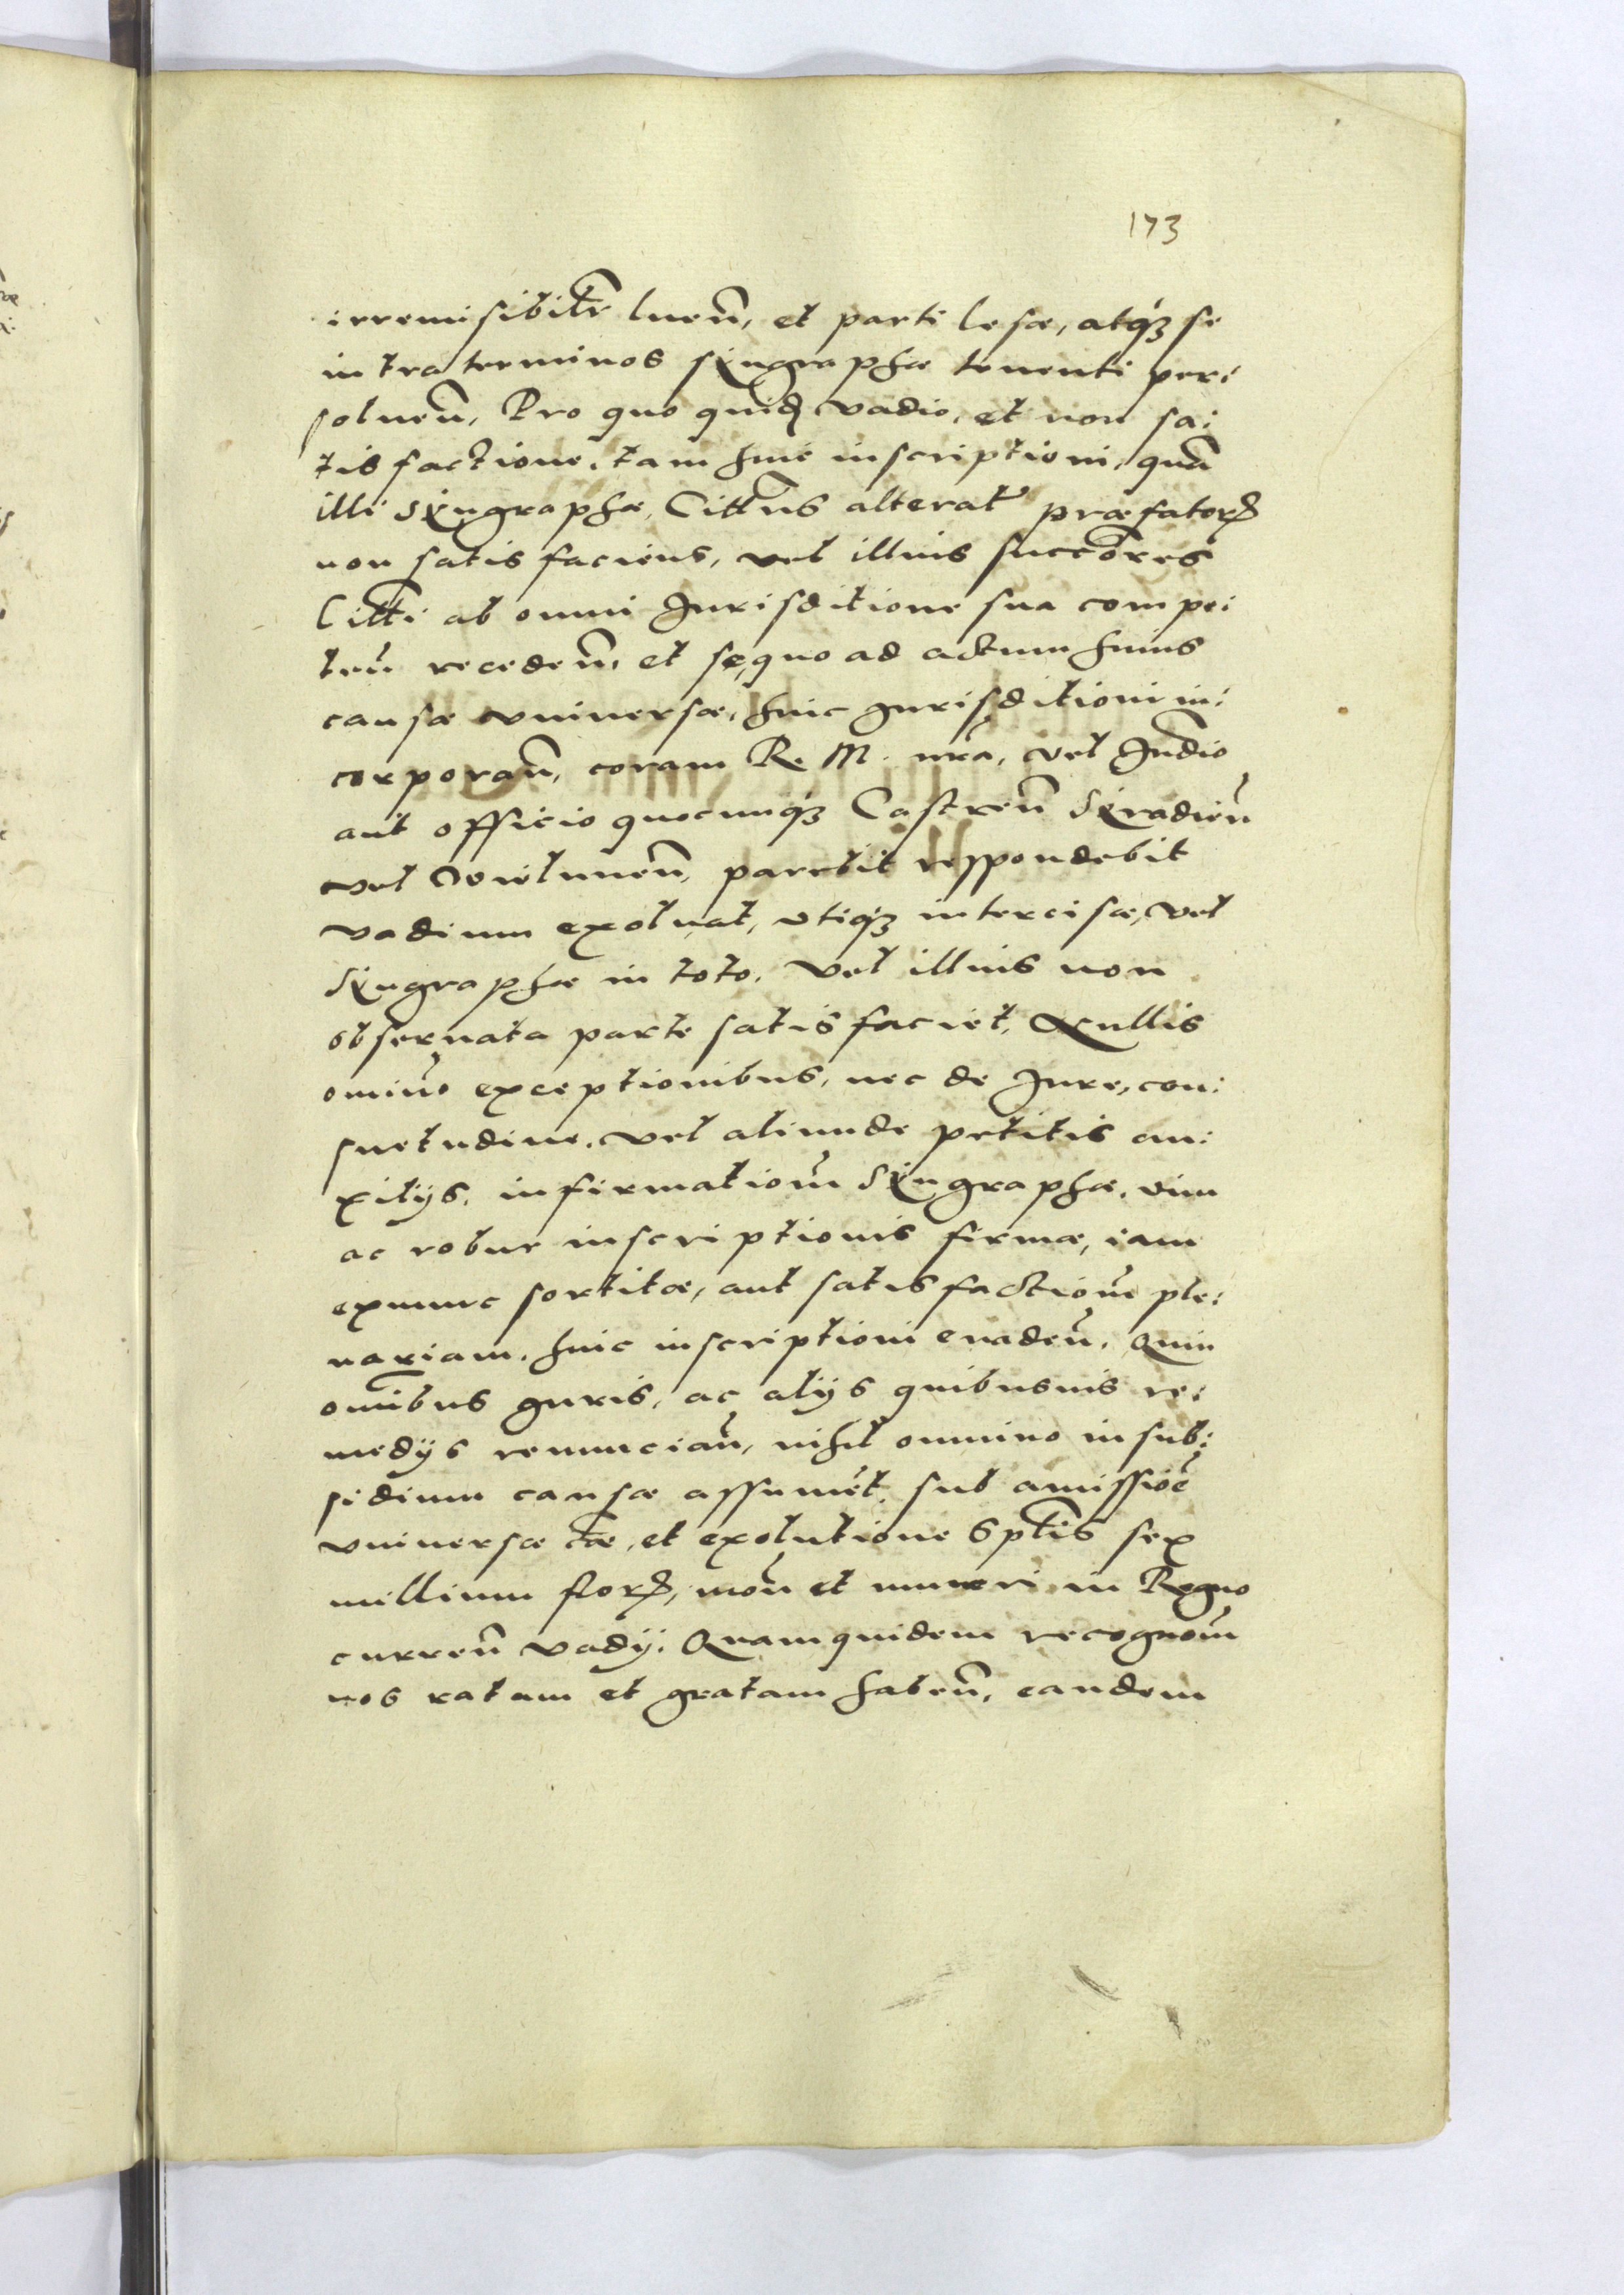 173
irremisibilr̃ luen̄, et parti lesæ, atq́ꝫ se
intra terminos syngraphæ tenenti per:
soluen̄, Pro quo quidẽ vadio, et non sa:
tisfactione, tam huic inscriptioni, quã
illi syngraphæ, Citt̃us alterat᷑ præfatorꝝ
non satis faciens, vel illius succõres
Citt̃i ab omni Jurisditione sua compe:
ten̄ receden̄, et se, quo ad actum huius
causæ vniuersæ, huic Jurisditioni in:
corporan̄, coram R. M. nrã, vel Judio
aut officio quocunq́ꝫ Castren̄ Syradien̄
vel Vielunen̄, parebit respondebit
vadium exoluat, vtiq́ꝫ intercisæ, vel
Syngraphæ in toto, vel illius non
obseruata parte satis faciet, Nullis
omino exceptionibus, nec de Jure, con:
suetudine, vel aliunde petitis au:
xilijs, infirmationẽ Syngraphæ, vim
ac robur inscriptionis firmæ, iam
exnunc sortitæ, aut satisfactionẽ ple:
nariam, huic inscriptioni euaden̄, Quin
omibus Juris, ac alijs quibusuis re:
medijs renuncian̄, nihil omnino in sub:
sidium causæ assumet, sub amissiõe
vniuersæ cæ, et exolutione Sptis sex
millium florꝝ, mon̄ et numeri in Regno
curren̄ vadij. Quam quidem recognom̃
nos ratam et gratam haben̄, eandem